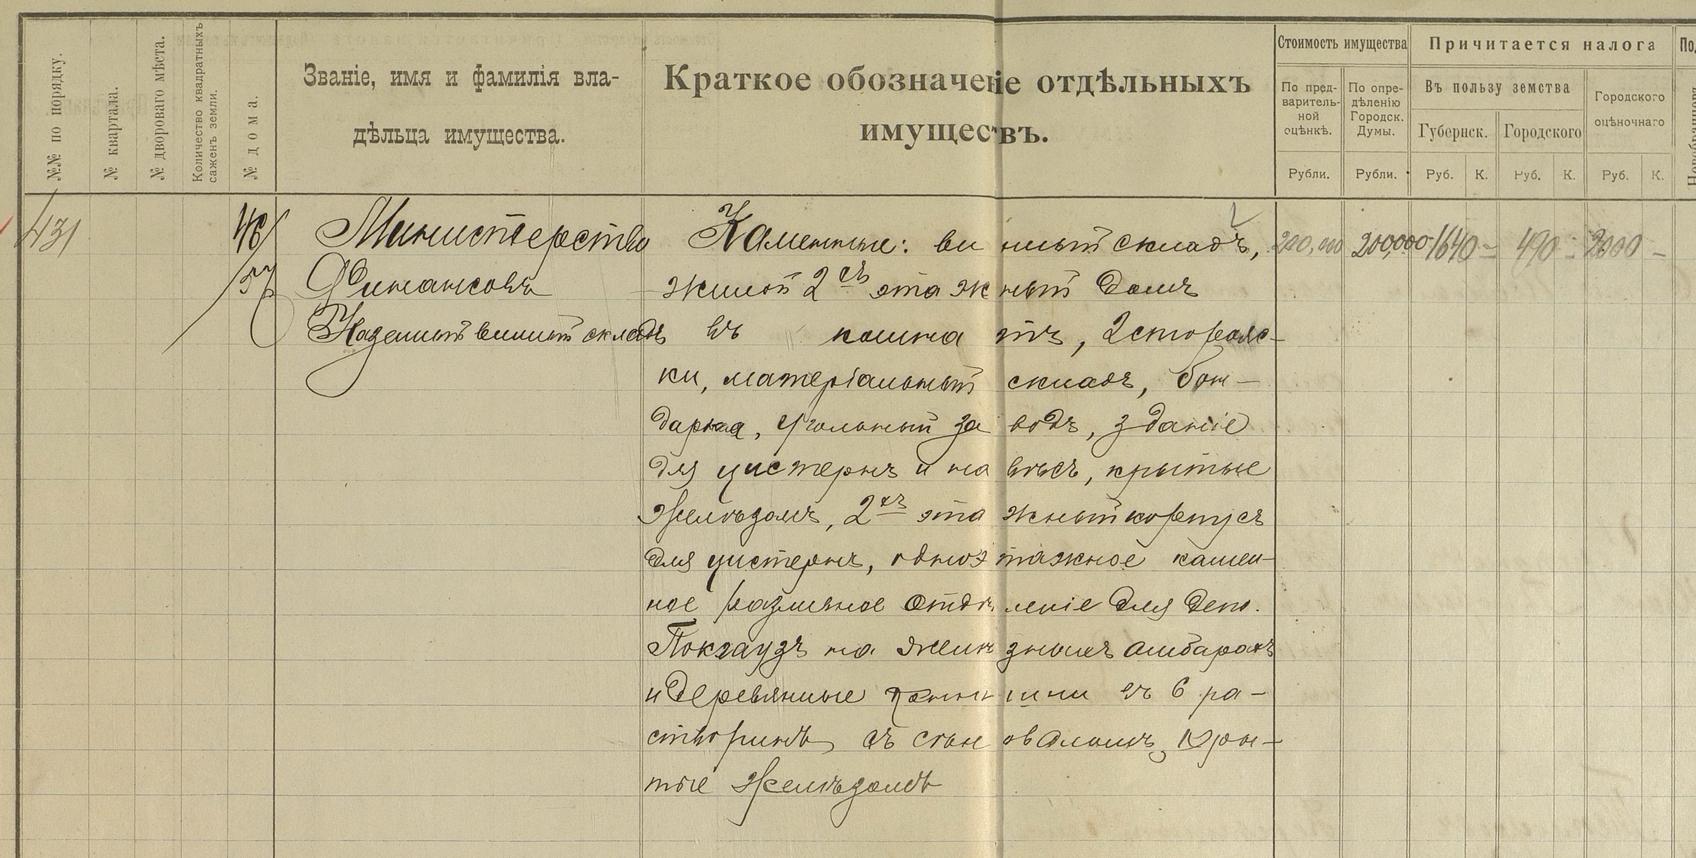 №№ по порядку.
№ квартала.
№ двороваго мѣста.
Количество квадратныхъ саженъ земли.
№ дома.
Званіе, имя и фамилія вла-
дѣльца имущества.
Краткое обозначеніе отдѣльныхъ
имуществъ.
Стоимость имущества
По пред-
варитель-
ной
оцѣнкѣ.
Рубли.
По опре-
дѣленію
Городск.
Думы.
Рубли.
Причитается налога
Въ пользу земства
Губернск.
Городского
Руб. К.
Руб. К.
Городского
оцѣночнаго
Руб. К.
431
46/57
Министерство
Финансовъ
Казенный винный складъ
Каменные: винный складъ,
жилой 2хъ этажный домъ
въ комнатъ, 2 сторожс-
ки, матеріальный складъ, бон-
дарная, угольный заводъ, зданіе
для цистернъ и навѣсъ, крытые
желѣзомъ, 2хъ этажный корпусъ
для цистернъ, одноэтажное камен-
ное разливное отдѣленіе для депо.
Покгаузъ на желѣзныхъ амбарахъ
и деревянные въ 6 ра-
створинъ съ сѣноваломъ, кры-
тые желѣзомъ
200,000 200,000 1640 – 490 – 2000 –